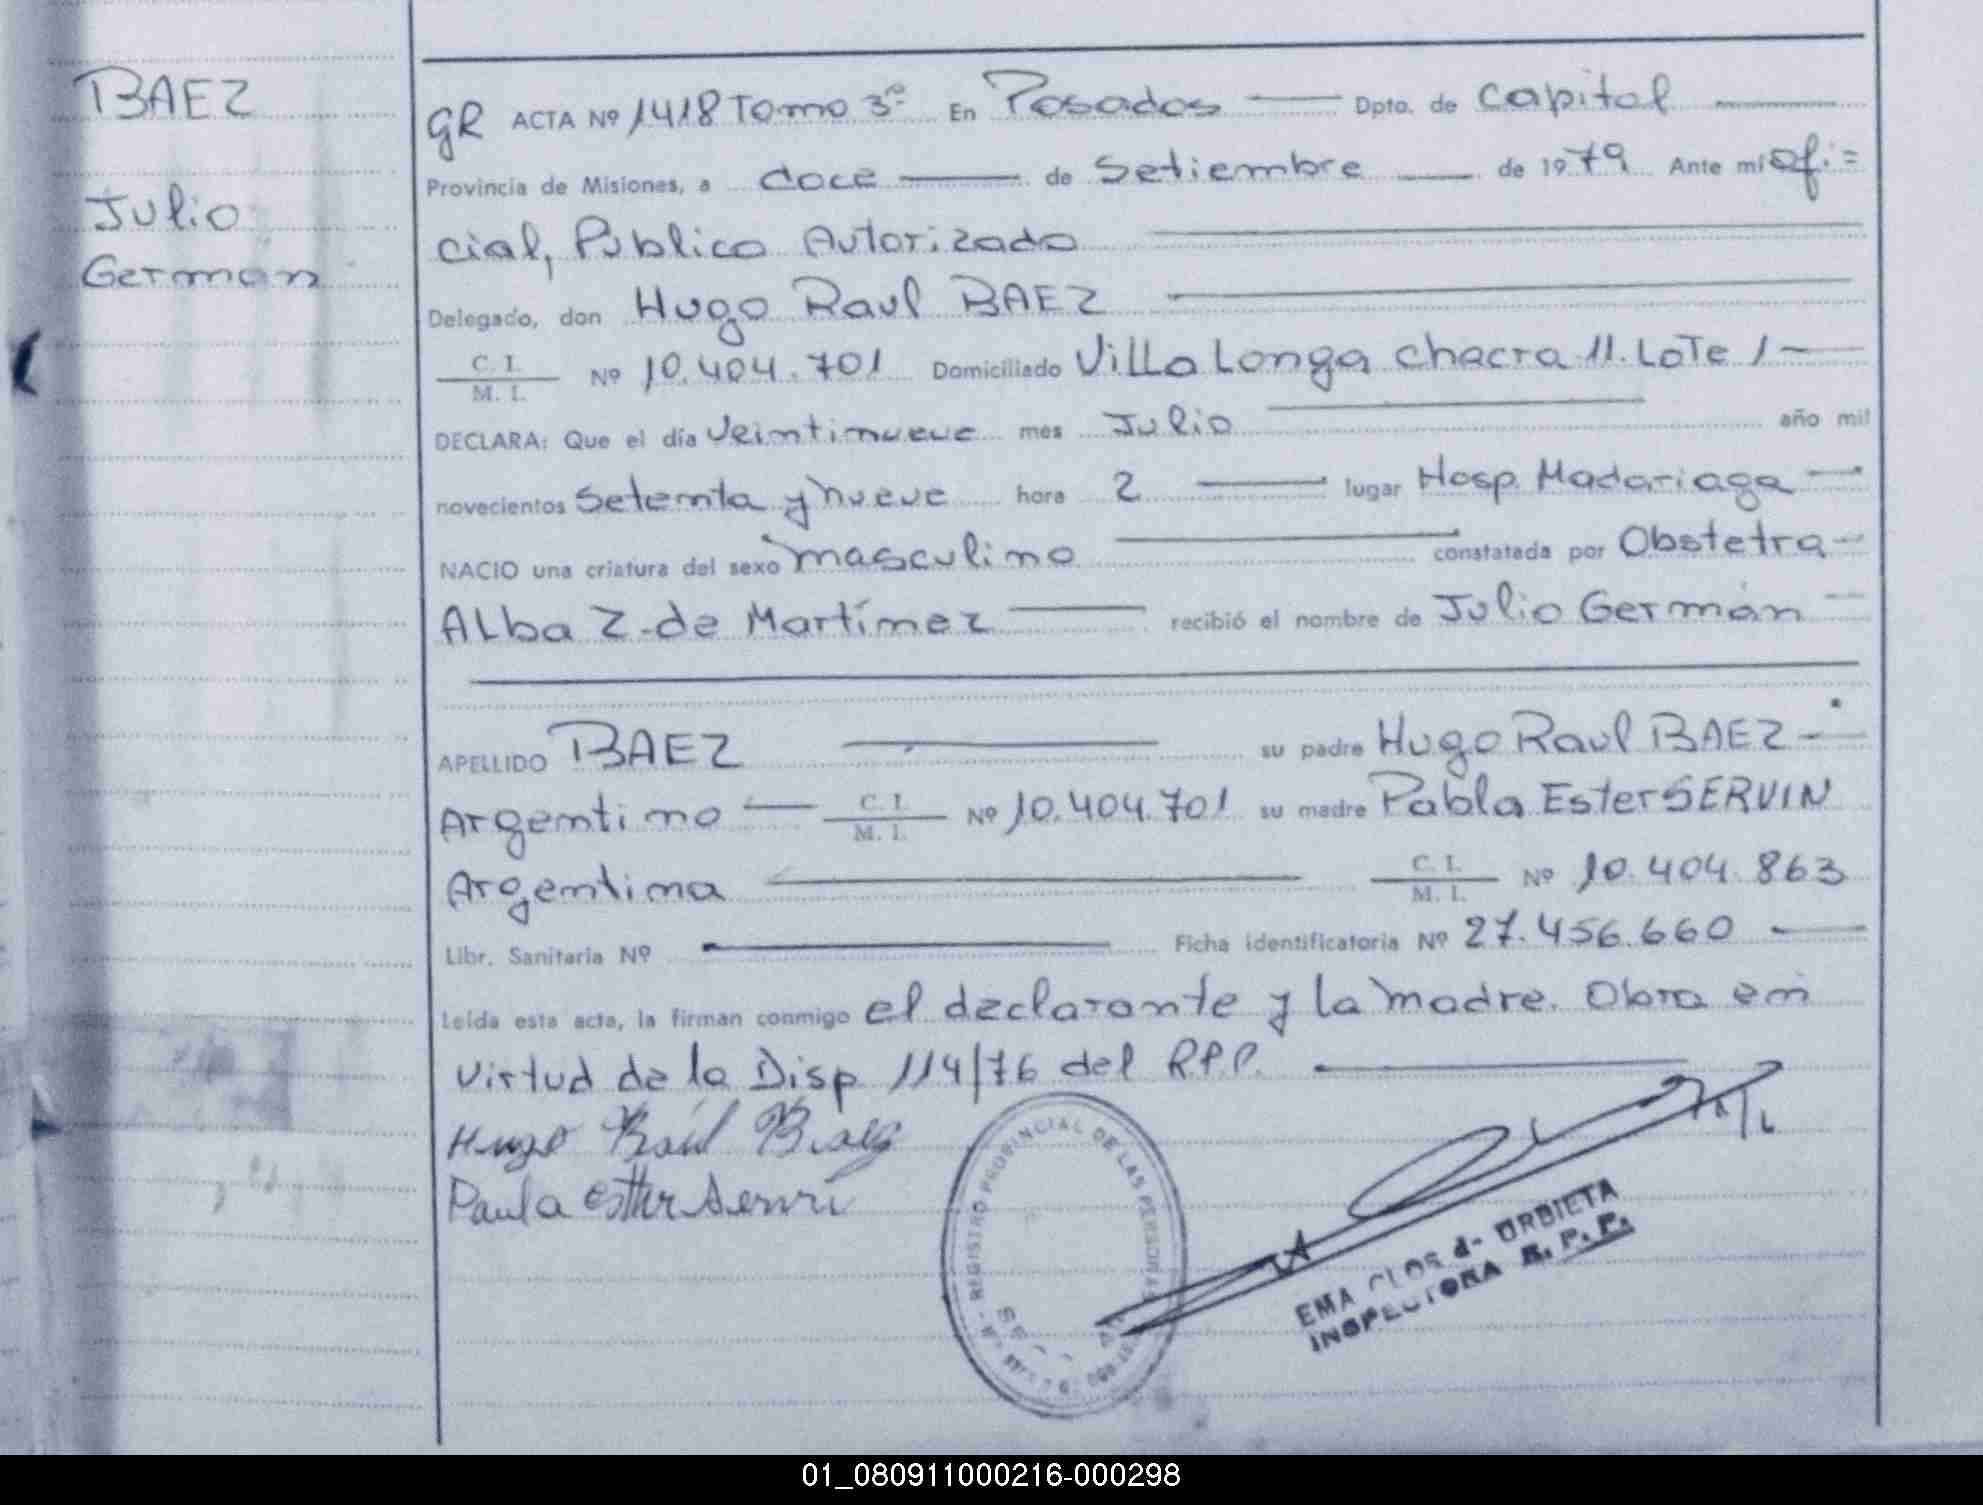 BAEZ
Julio
Germán
GR ACTA Nº 1418 Tomo 3º En Posadas Dpto. de Capital
Provincia de Misiones, a doce de Setiembre de 1979 Ante mí Ofi=
cial, Publico Autorizado
Delegado, don Hugo Raul BAEZ
C. I.
M. I. Nº 10.404.701 Domiciliado Villa Longa chacra 11. Lote 1
DECLARA: Que el día veintinueve mes Julio año mil
novecientos setenta y nueve hora 2 lugar Hosp. Madariaga
NACIO una criatura del sexo masculino constatada por Obstetra
Alba Z. de Martínez recibió el nombre de Julio Germán
APELLIDO BAEZ su padre Hugo Raul BAEZ
Argentino C. I. M. I. Nº 10.404.701 su madre Pabla Ester SERVIN
Argentina C. I. M. I. Nº 10.404.863
Libr. Sanitaria Nº Ficha identificatoria Nº 27.456.660
Leída esta acta, la firman conmigo el declarante y la madre. Obra en
virtud de la Disp 114/76 del R.P.P.
Hugo Raúl Baez
Paula Ester Servin
REGISTRO PROVINCIAL DE LAS PERSONAS
EMA CLOS d- URDIETA
INSPECTORA R. P. P.
01_080911000216-000298